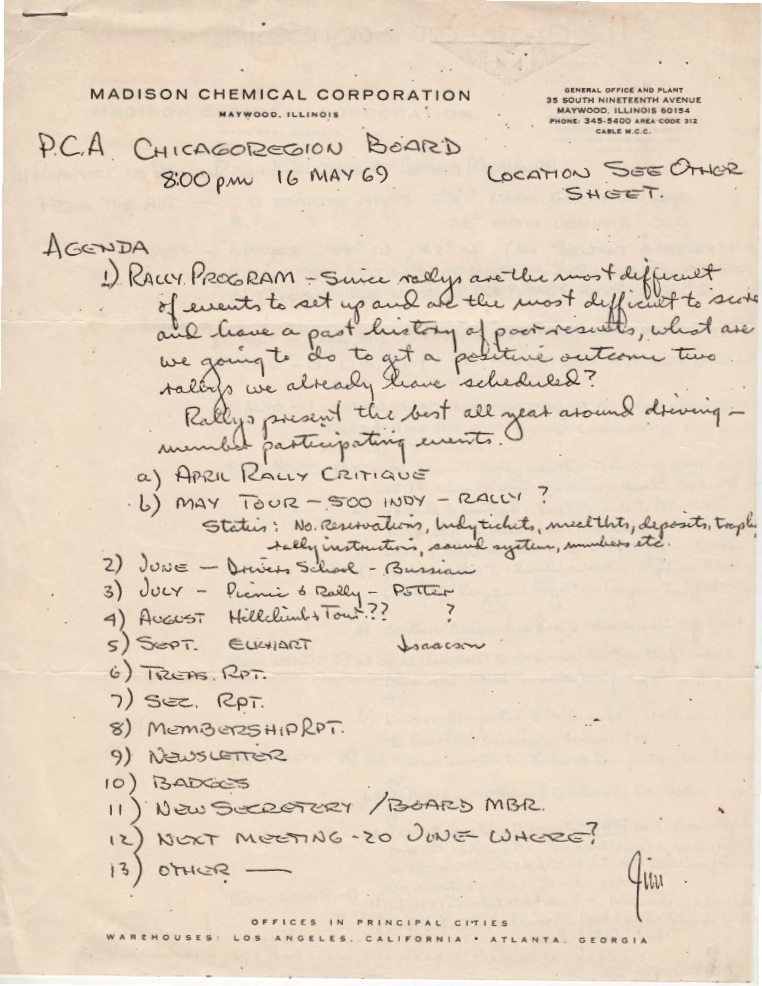 MADISON CHEMICAL CORPORATION
MAYWOOD, ILLINOIS
GENERAL OFFICE AND PLANT
35 SOUTH NINETEENTH AVENUE
MAYWOOD, ILLINOIS 60154
PHONE: 345-5400 AREA CODE 312
CABLE M.C.C.
P.C.A. CHICAGOREGION BOARD
8:00 pm 16 MAY 69
LOCATION SEE OTHER
SHEET.
AGENDA
1) RALLY PROGRAM - Since rallys are the most difficult
of events to set up and are the most difficult to score
and have a past history of poor results, what are
we going to do to get a positive outcome two
rallys we already have scheduled?
Rallys present the best all year around driving -
member participating events.
a) APRIL RALLY CRITIQUE
b) MAY TOUR - 500 INDY - RALLY ?
Status: No. Reservations, Indy tickets, meal thts, deposits, trophy
rally instructions, sound system, numbers etc.
2) JUNE - Drivers School - Bussian
3) JULY - Picnic & Rally - Potter
4) AUGUST Hillclimb & Tour?? ?
5) SEPT. ELKHART Isaacson
6) TREAS. RPT.
7) SEC. RPT.
8) MEMBERSHIP RPT.
9) NEWSLETTER
10) BADGES
11) NEW SECRETERY / BOARD MBR.
12) NEXT MEETING - 20 JUNE WHERE?
13) OTHER —
Jim
OFFICES IN PRINCIPAL CITIES
WAREHOUSES: LOS ANGELES, CALIFORNIA • ATLANTA, GEORGIA